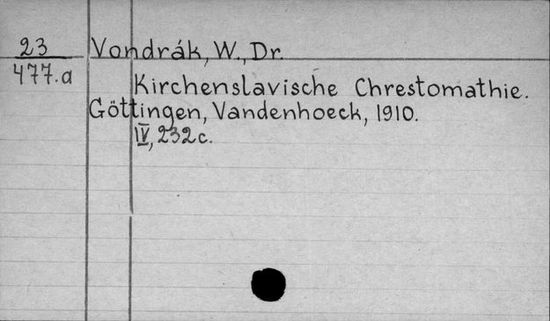 23 Vondrák, W., Dr.
477.a Kirchenslavische Chrestomathie.
Göttingen, Vandenhoeck, 1910.
IV, 232 c.